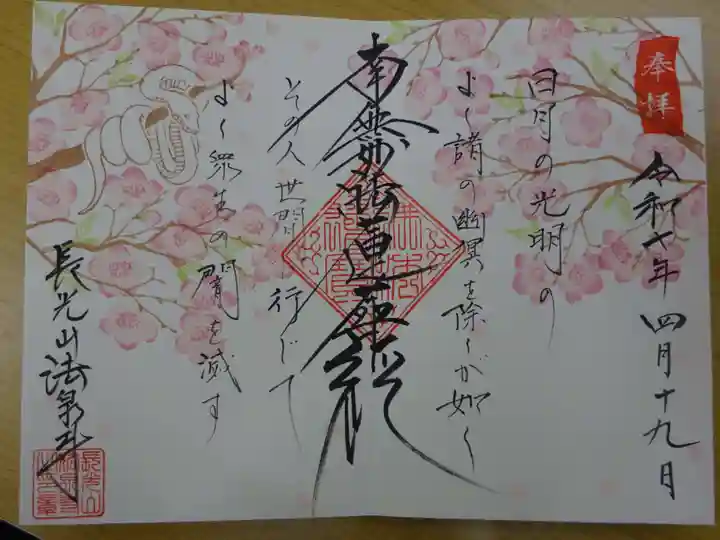 奉拝
令和七年四月十九日
日月の光明の
よく諸の幽冥を除くが如く
南無妙法蓮華経
その人世間に行じて
よく衆生の闇を滅す
長光山法泉寺